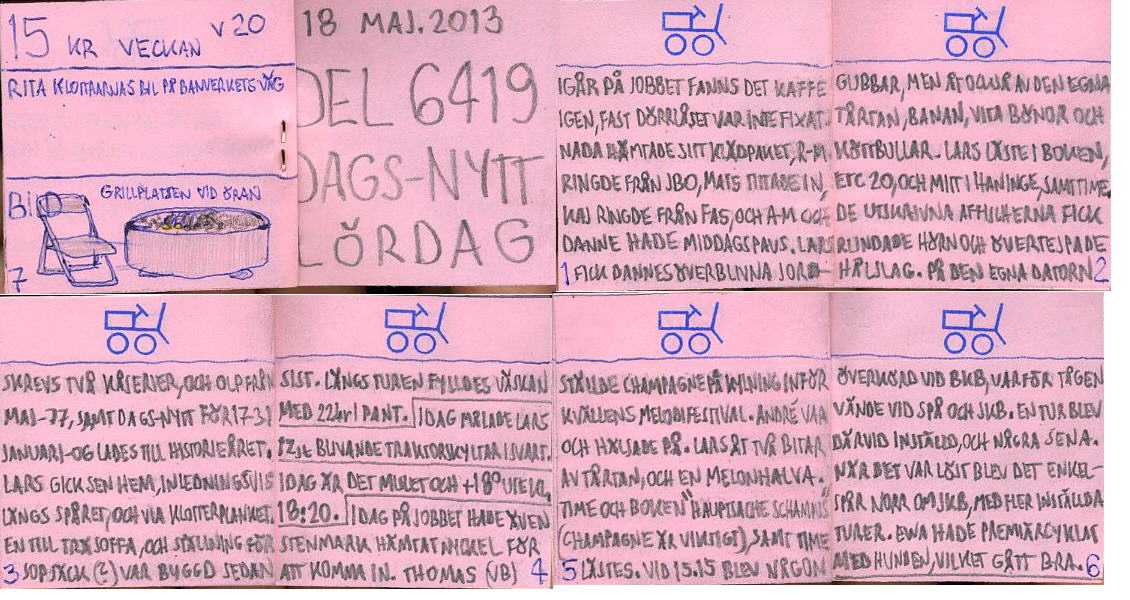 15 KR VECKAN V 20
RITA KLOTTRARNAS BIL PÅ BANVERKETS VÄG
GRILLPLATSEN VID ÖRAN
BILD
7
18 MAJ. 2013
DEL 6419
DAGS-NYTT
LÖRDAG
IGÅR PÅ JOBBET FANNS DET KAFFE
IGEN, FAST DÖRRLÅSET VAR INTE FIXAT.
NADA HÄMTADE SITT KLÄDPAKET, R-M
RINGDE FRÅN JBO, MATS TITTADE IN,
KAJ RINGDE FRÅN FAS, OCH A-M OCH
DANNE HADE MIDDAGSPAUS. LARS
1 FICK DANNES ÖVERBLIVNA JORD-
GUBBAR, MEN ÅT OCKSÅ AV DEN EGNA
TÅRTAN, BANAN, VITA BÖNOR OCH
KÖTTBULLAR. LARS LÄSTE I BOKEN,
ETC 20, OCH MITT I HANINGE, SAMT TIME.
DE UTSKRIVNA AFFISCHERNA FICK
RUNDADE HÖRN OCH ÖVERTEJPADE
HÅLSLAG. PÅ DEN EGNA DATORN 2
SKREVS TVÅ KÅSERIER, OCH OLP FRÅN
MAJ-77, SAMT DAGS-NYTT FÖR 17-31
JANUARI-06 LADES TILL HISTORIEÅRET.
LARS GICK SEN HEM, INLEDNINGSVIS
LÄNGS SPÅRET, OCH VIA KLOTTERPLANKET.
EN TILL TRÄSOFFA, OCH STÄLLNING FÖR
3 SOPSÄCK (?) VAR BYGGD SEDAN
SIST. LÄNGS TUREN FYLLDES VÄSKAN
MED 22kr I PANT. IDAG MÅLADE LARS
12st BLIVANDE TRAKTORSKYLTAR I SVART.
IDAG ÄR DET MULET OCH +18° UTE KL.
18:20. IDAG PÅ JOBBET HADE ÄVEN
STENMARK HÄMTAT NYCKEL FÖR
ATT KOMMA IN. THOMAS (VB) 4
STÄLLDE CHAMPAGNE PÅ KYLNING INFÖR
KVÄLLENS MELODIFESTIVAL. ANDRÉ VAR
OCH HÄLSADE PÅ. LARS ÅT TVÅ BITAR
AV TÅRTAN, OCH EN MELONHALVA.
TIME OCH BOKEN "HAUPTSACHE SCHAMPUS"
(CHAMPAGNE ÄR VIKTIGT), SAMT TIME
5 LÄSTES. VID 15.15 BLEV NÅGON
ÖVERKÖRD VID BKB, VARFÖR TÅGEN
VÄNDE VID SPÅ OCH JKB. EN TUR BLEV
DÄRVID INSTÄLLD, OCH NÅGRA SENA.
NÄR DET VAR LÖST BLEV DET ENKEL-
SPÅR NORR OM JKB, MED FLER INSTÄLLDA
TURER. EWA HADE PREMIÄRCYKLAT
MED HUNDEN, VILKET GÅTT BRA. 6